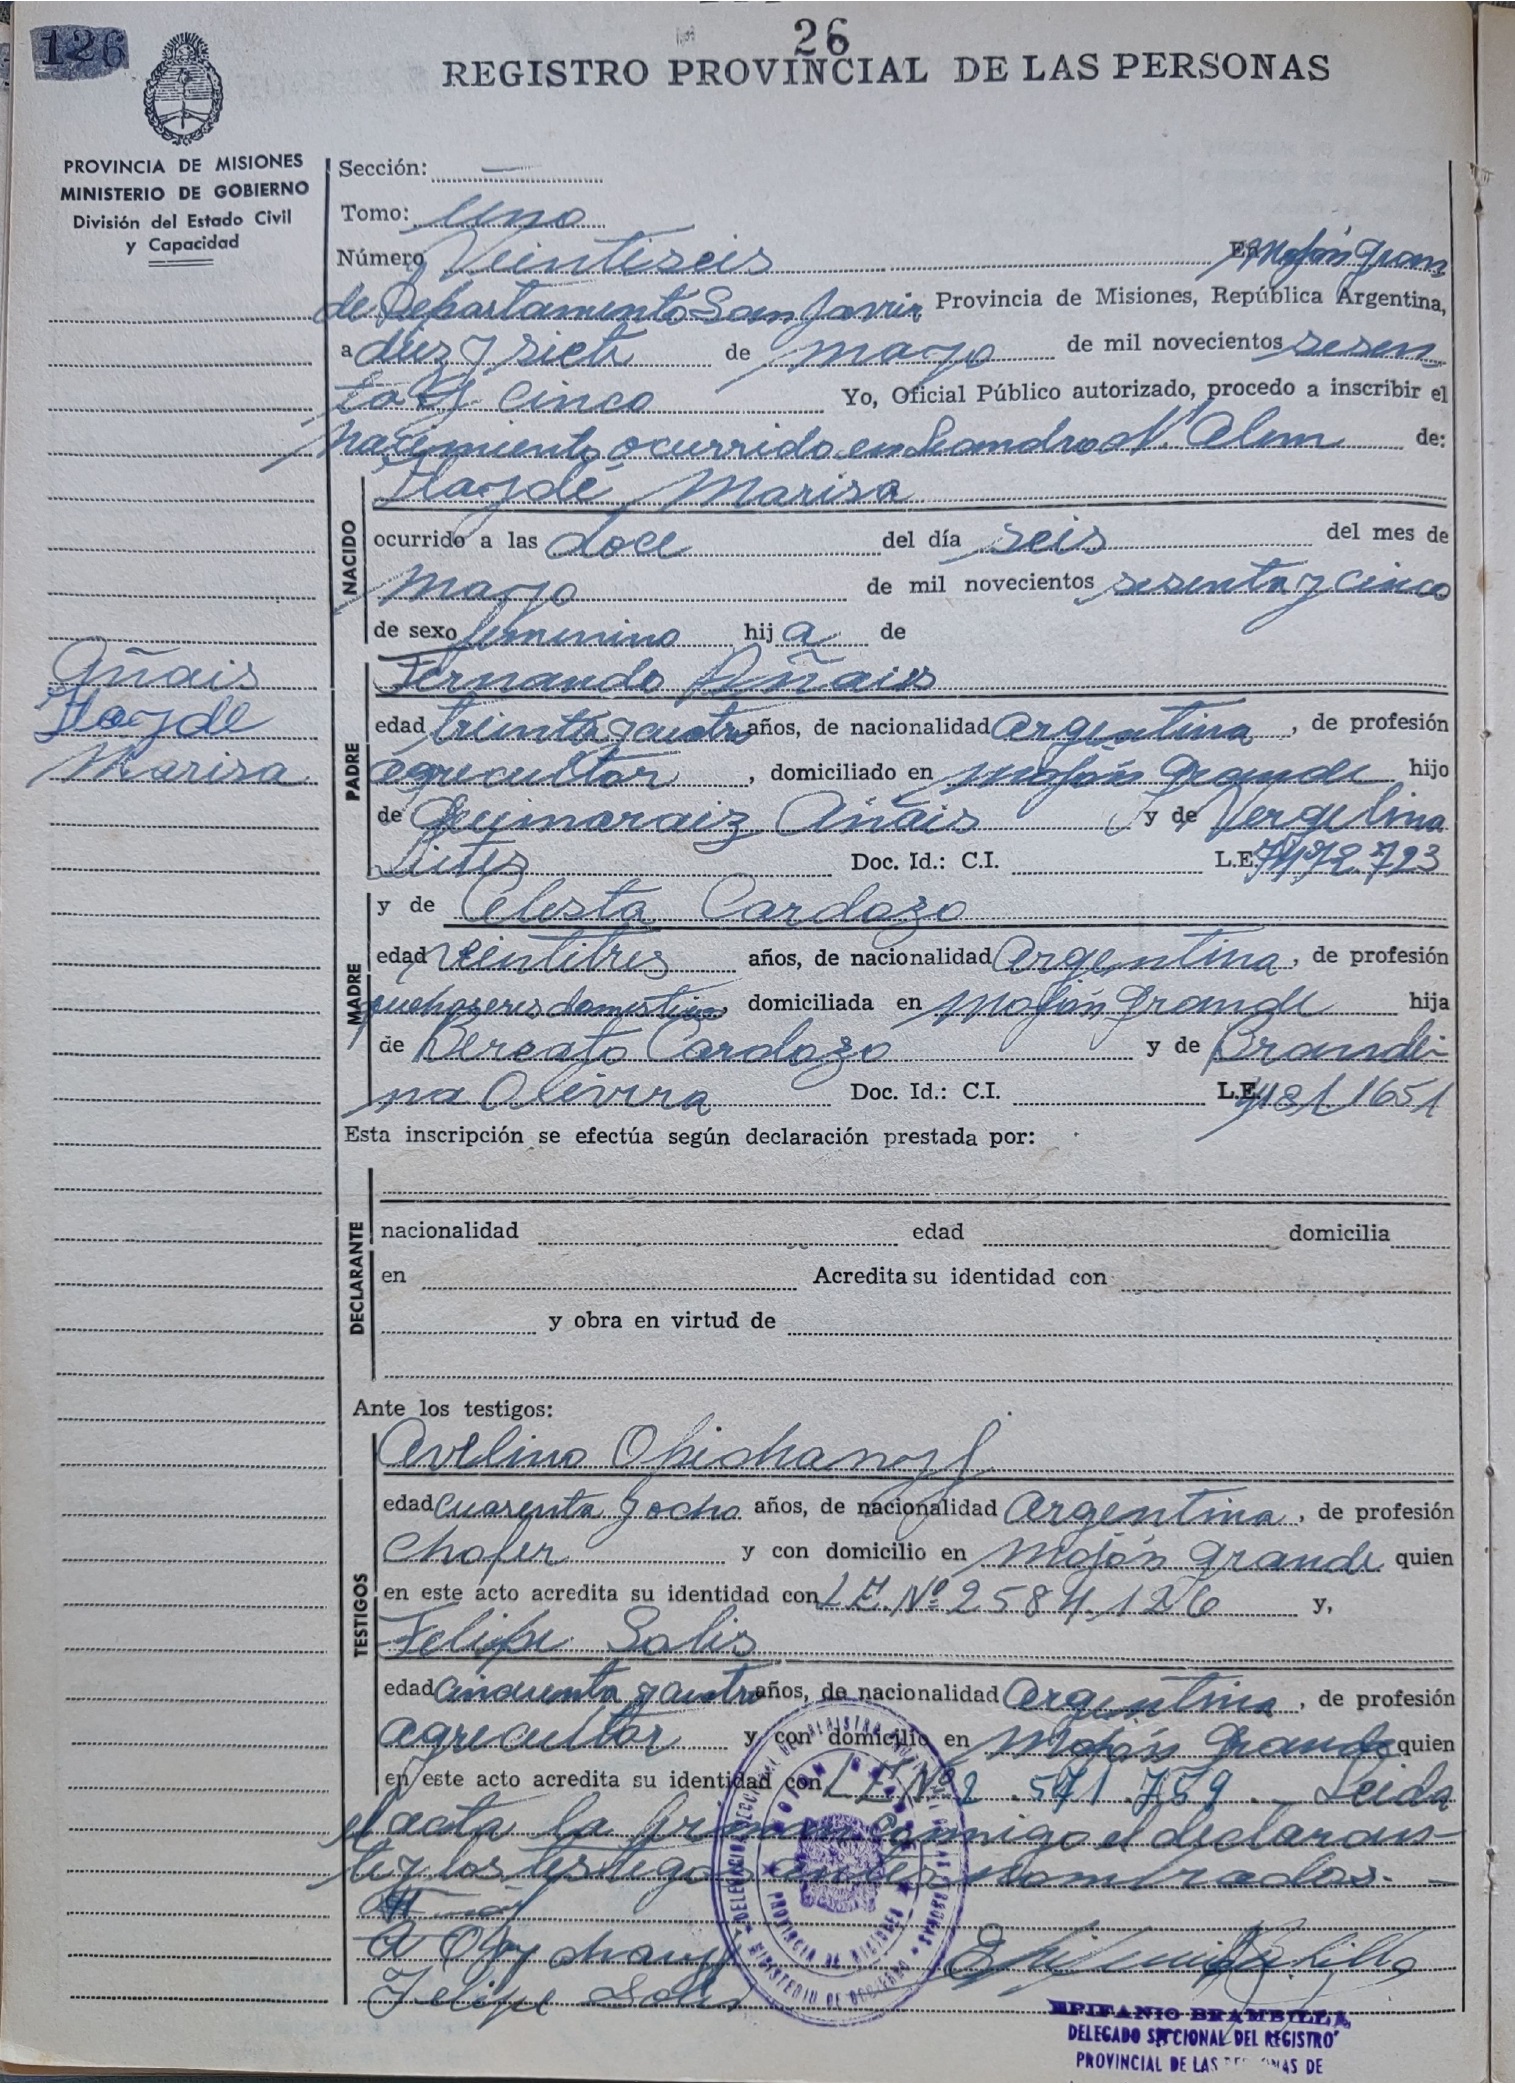 126
26
REGISTRO PROVINCIAL DE LAS PERSONAS
PROVINCIA DE MISIONES
MINISTERIO DE GOBIERNO
División del Estado Civil
y Capacidad
Sección:
Tomo: Uno
Número Veintiseis En Mojón Gran
de Departamento San Javier Provincia de Misiones, República Argentina,
a diez y siete de mayo de mil novecientos sesen
ta y cinco Yo, Oficial Público autorizado, procedo a inscribir el
nacimiento ocurrido en Leandro N. Alem de:
NACIDO
Haydé Marisa
ocurrido a las doce del día seis del mes de
mayo de mil novecientos sesenta y cinco
de sexo femenino hija de
Añais
Haydé
Marisa
PADRE
Fernando Añais
edad treinta y cuatro años, de nacionalidad Argentina, de profesión
agrecultor, domiciliado en Mojón Grande hijo
de Guimaraiz Añais y de Vergelina
Doc. Id.: C.I. L.E. 7.472.723
MADRE
y de Celesta Cardozo
edad veintitres años, de nacionalidad Argentina, de profesión
quehaseres domesticos, domiciliada en Mojón Grande hija
de Cardozo y de Brande-
na Olivira Doc. Id.: C.I. L.E.
Esta inscripción se efectúa según declaración prestada por:
DECLARANTE
nacionalidad edad domicilia
en Acredita su identidad con
y obra en virtud de
Ante los testigos:
TESTIGOS
Avelino
edad cuarenta y ocho años, de nacionalidad Argentina, de profesión
chofer y con domicilio en Mojón Grande quien
en este acto acredita su identidad con L.E. Nº 2584.126 y,
Felipe Solis
edad cincuenta y cuatro años, de nacionalidad Argentina, de profesión
agrecultor y con domicilio en Mojón Grande quien
en este acto acredita su identidad con L.E. Nº 2.571.759.- Leida
el acta la firman conmigo el declaran-
te y los testigos antes nombrados.-
Felipe Solis
MOJON GRANDE
PROVINCIA DE MISIONES
MINISTERIO DE GOBIERNO
EPIFANIO BRAMBILLA
DELEGADO SECCIONAL DEL REGISTRO
PROVINCIAL DE LAS PERSONAS DE